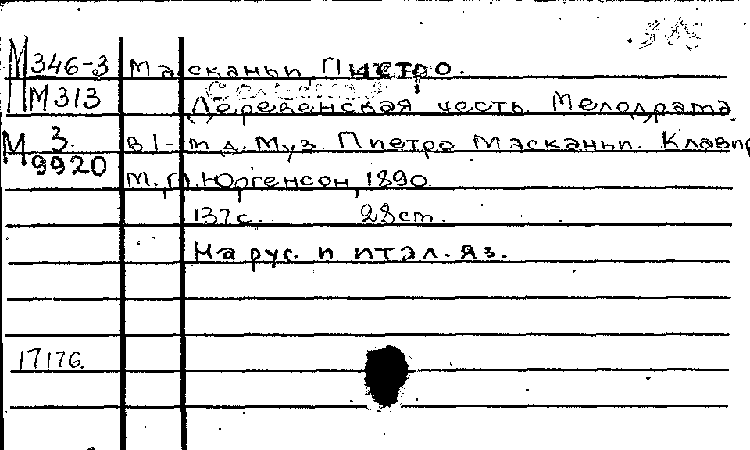 М 346-3 Масканьи, Пиетро.
М 313 Деревенская честь. Мелодрама
М 3 9920 в 1-м д. Муз. Пиетро Масканьи. Клавир
М., П. Юргенсон, 1890.
137 с. 28 ст.
На рус. и итал. яз.
17176.